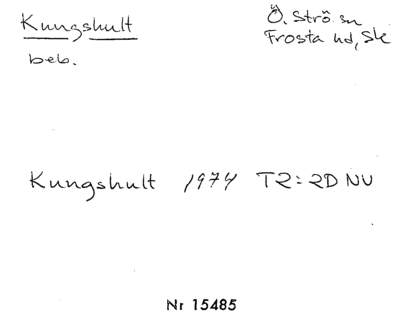 Kungshult
Ö. Strö sn
Frosta hd, Sk
beb.
Kungshult 1974 T2: 2D NV
Nr 15485